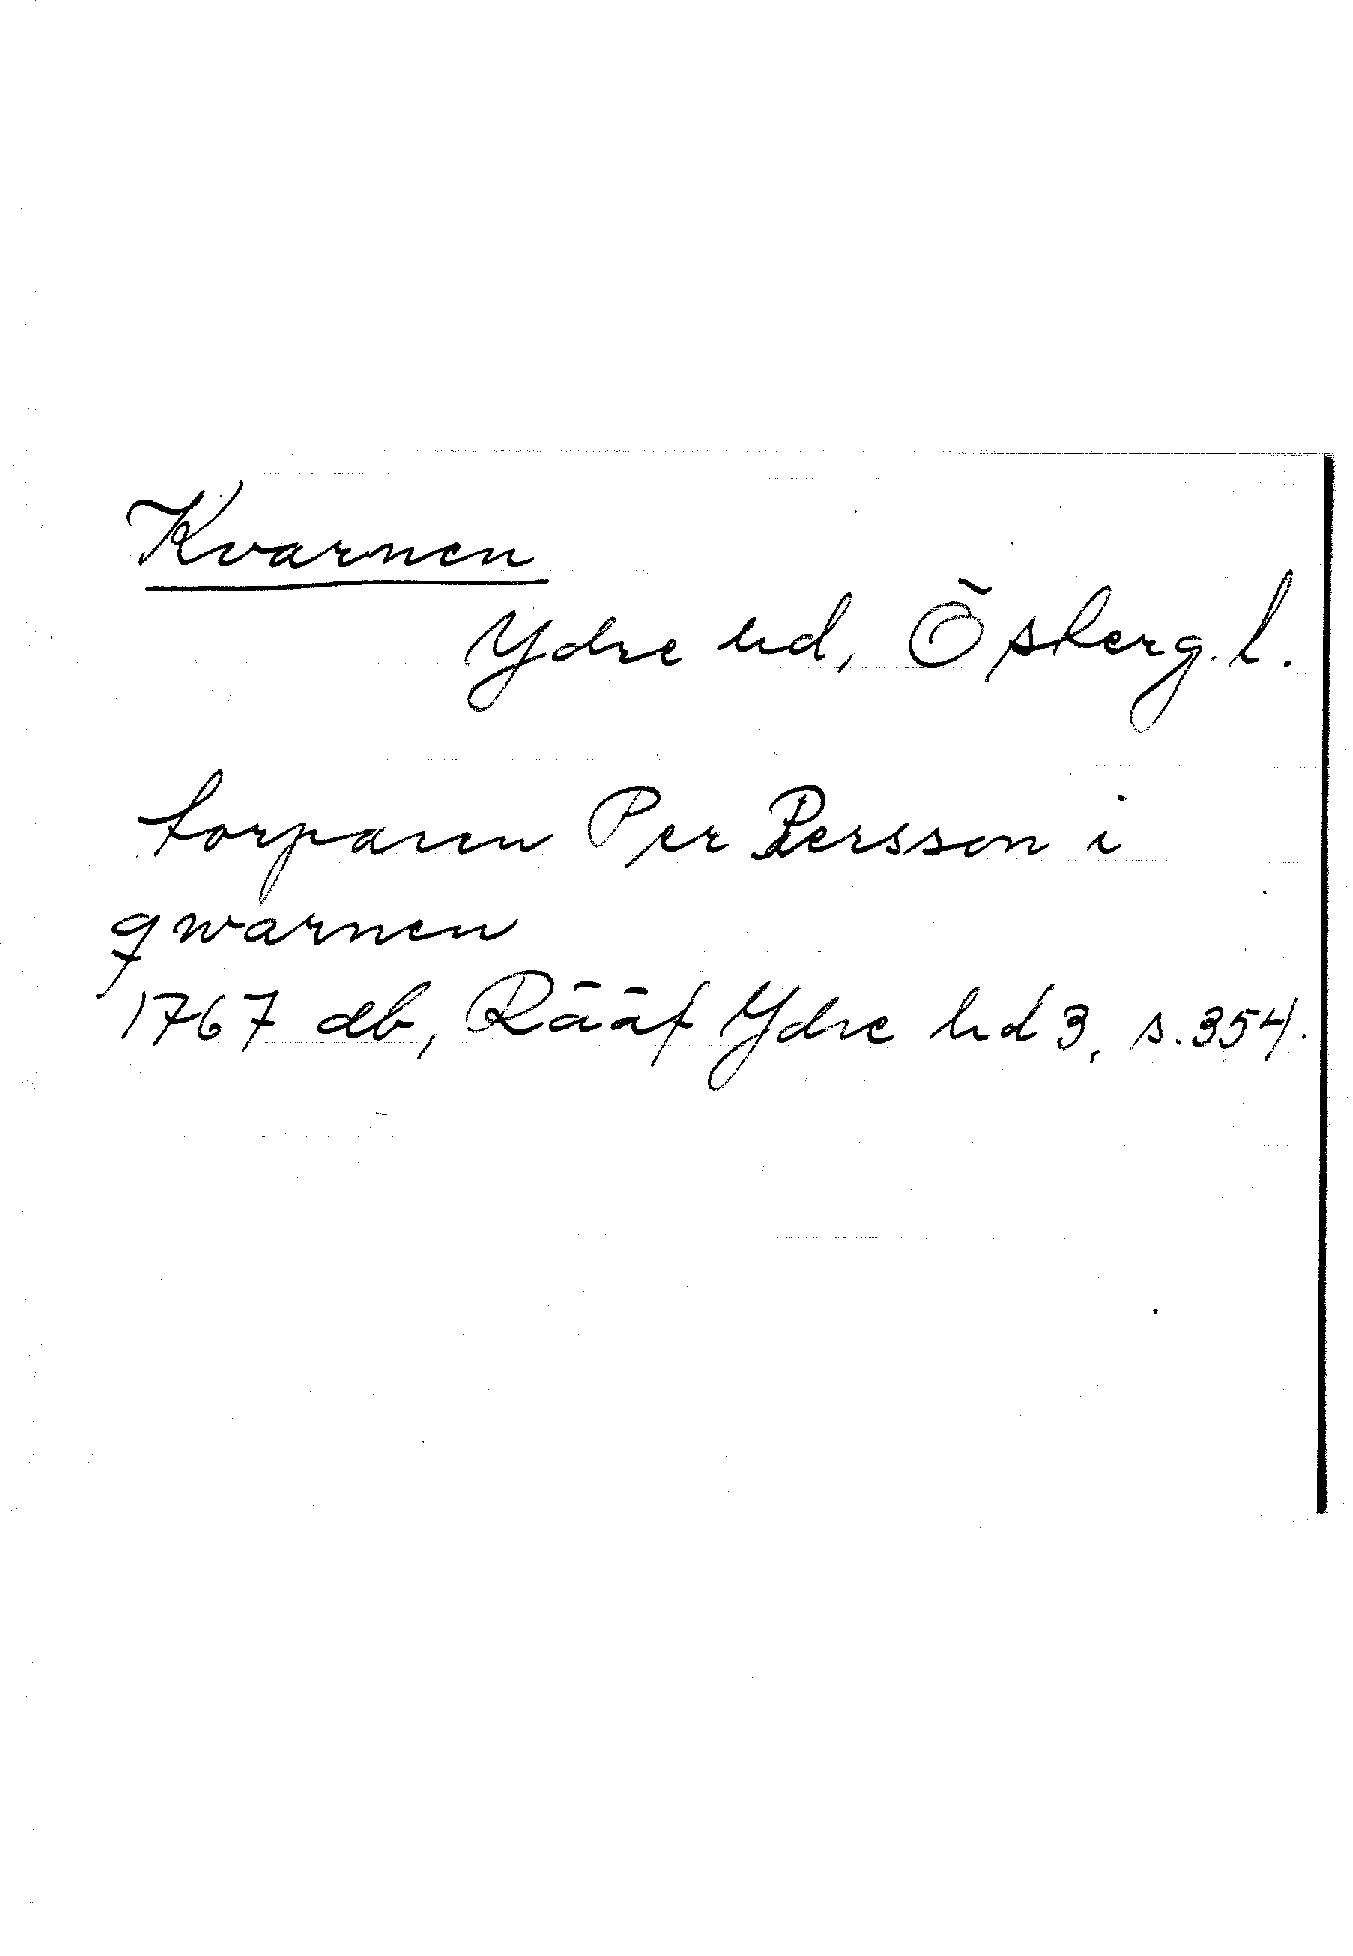 Kvarnen
Ydre hd, Östergl.
torparen Per Persson i
qwarnen
1767 db, Rääf Ydre hd 3, s. 354.